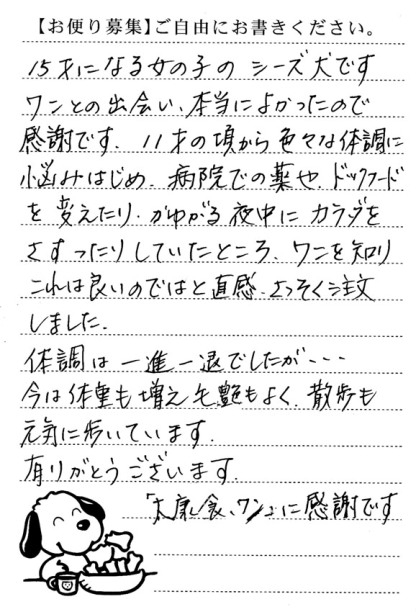 【お便り募集】ご自由にお書きください。
15才になる女の子の シーズ犬です
ワンとの出会い、本当によかったので
感謝です。11才の頃から色々な体調に
悩みはじめ、病院での薬や、ドックフード
を変えたり、かゆがる夜中にカラダを
さすったりしていたところ、ワンを知り
これは良いのではと直感、さっそく注文
しました。
体調は一進一退でしたが・・・
今は体重も増え毛艶もよく、散歩も
元気に歩いています。
有りがとうございます。
「大康食、ワン」に感謝です